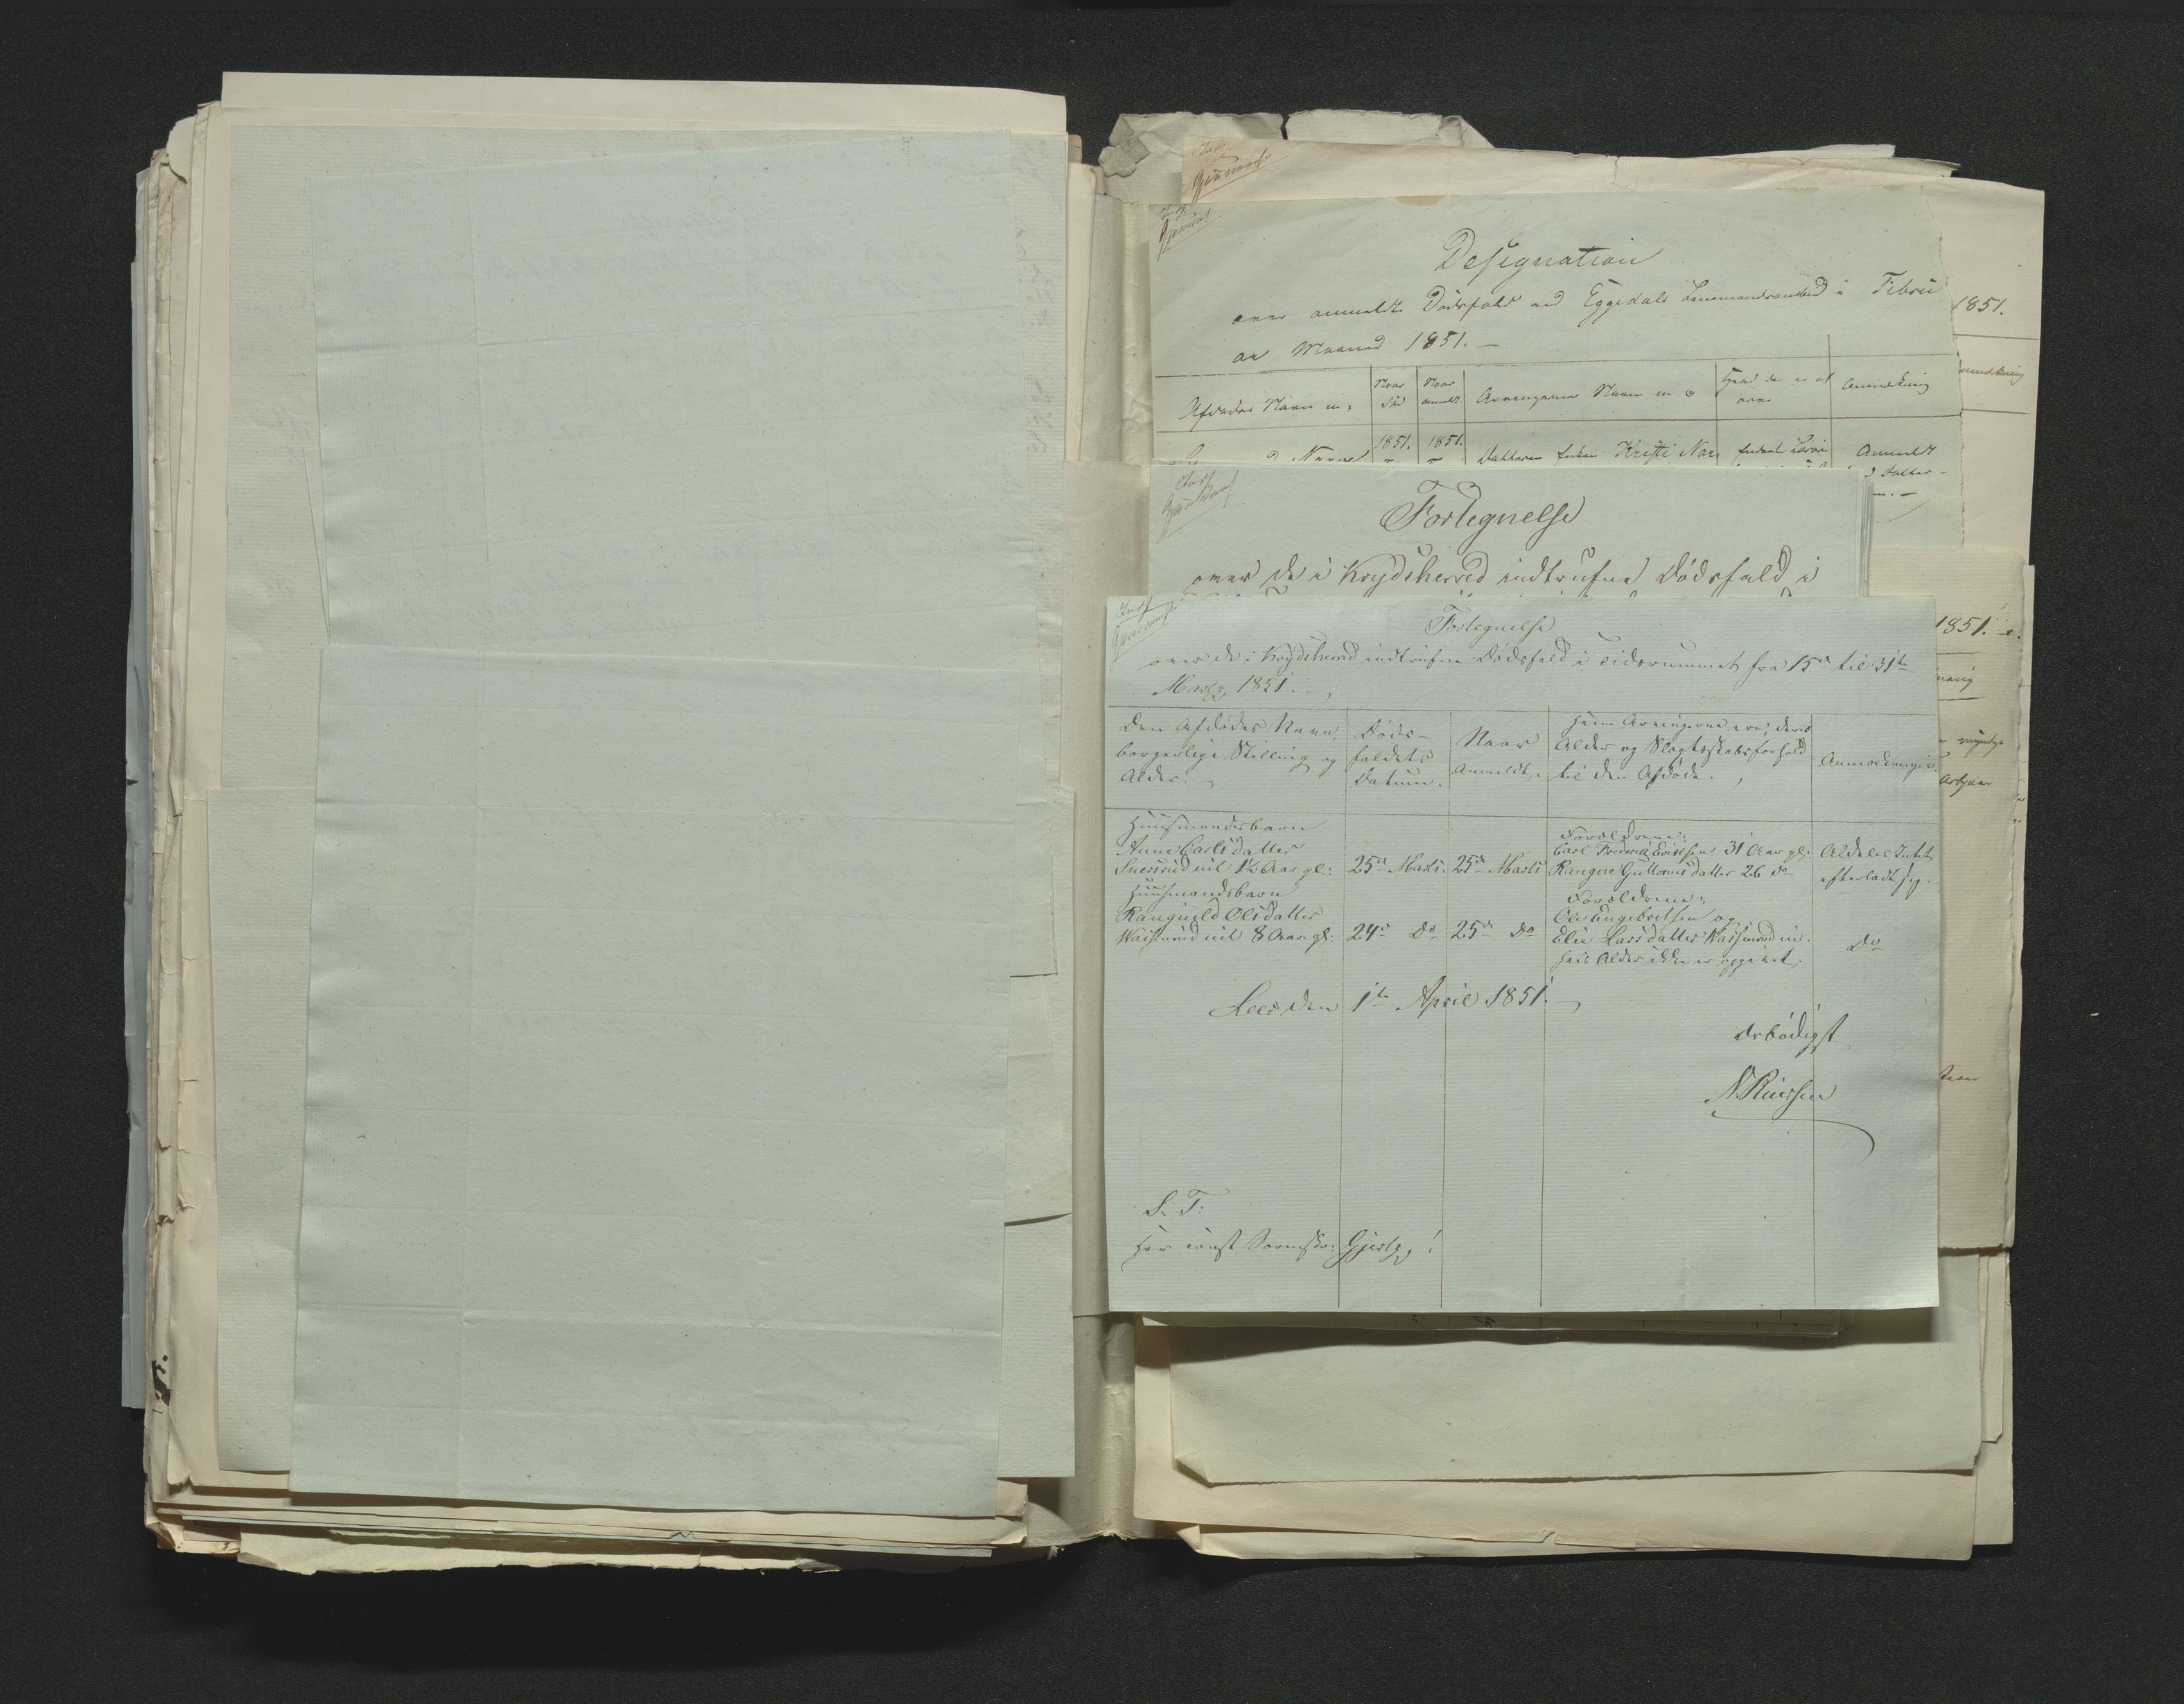 Designation
over anmeldte Dødsfald ved Eggedals Lensmandsombud i Februar Maaned 1851. —
Afdødes Navn m.
Naar død
Naar anmeldt
Arvingernes Navn m
Hvad der er at arve
Anmerkning
1851.
1851.
Datteren Enken Kristi
Anmeldt
Datter
1851.
1851.
Fortegnelse
over de i Krydsherred indtrufne Dødsfald i
Fortegnelse
over de i Krydsherred indtrufne Dødsfald i Tidsrummet fra 15de til 31te
Martz 1851. —
Den Afdødes Navn,
borgerlige Stilling og
Alder. —
Døds-
faldets
Datum.
Naar
Anmeldt.
Hvem Arvingerne ere, deres
Alder og Slægtskabsforhold
til den Afdøde.
Anmærkninger.
Huusmandsbarn
Anne Carlsdatter
1½ Aar gl:
25de Marts.
25de Marts
Forældrene:
Carl Frederik Erichsen 31 Aar gl:
Rangne Guttormsdatter 26 do
Aldeles Intet
efterladt sig.
Huusmandsbarn
Rangnild Olsdatter
8 Aar gl:
24de do
25de do
Forældrene:
Ole Engebretsen og
Elie Larsdatter
hvis Alder ikke er opgivet.
do
Lees den 1te April 1851. —
Ærbødigst
N. Ruersen
S. T.
Herr const Sorenskr: Gjertz, !